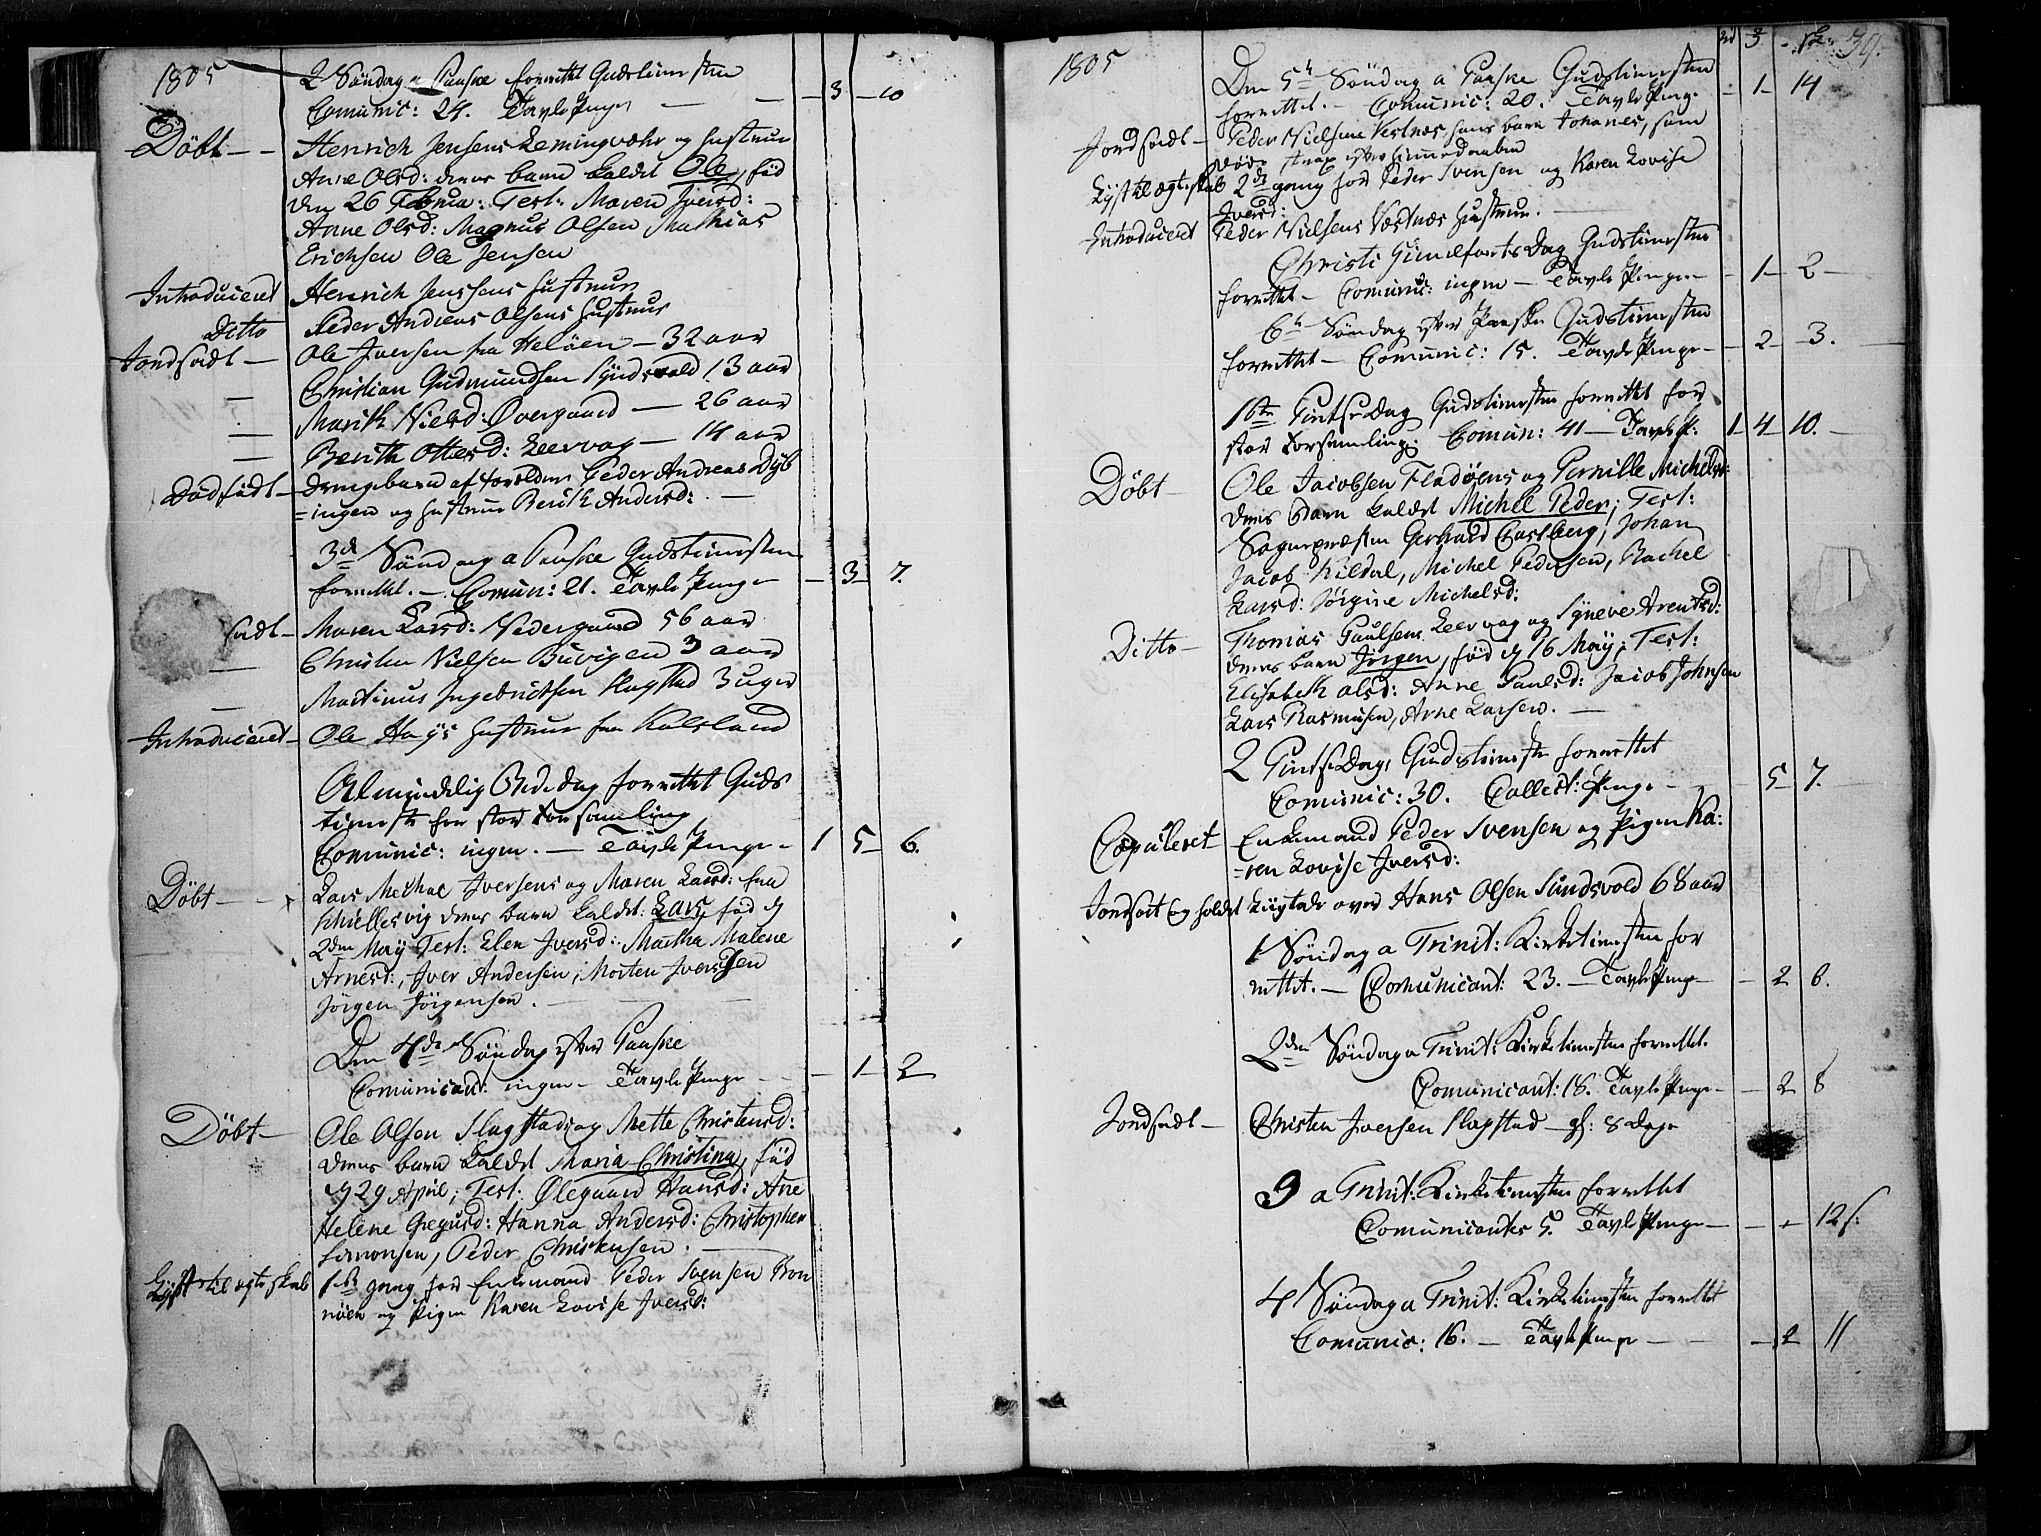 1805
2 Söndag a Paaske forrettet Gudstienesten
Comunic: 24. Tavle Penge — 3 — 10
Döbt — Henrich Jensens Lemingvæhr og hustrue
Anne Olsd: deres barn kaldet Ole, föd
den 26 Februa: Test: Maren Iversd:
Anne Olsd: Magnus Olsen Mathias
Erichsen Ole Jensen
Introduceret Henrich Jenssens hustrue
Ditto Peder Andreas Olsens hustrue
Jordfæstet — Ole Iversen fra Helöen — 32 aar
— Christian Gudmundsen Syndsvold 13 aar
— Marith Nielsd: Overgaard — 26 aar
— Berith Ottesd: Leervog — 14 aar
Dödföd — drengebarn af forældre Peder Andreas Dyb
=ingen og hustrue Berith Andersd: —
3de Söndag a Paaske Gudstienesten
forrettet. — Comun: 21. Tavle Penge — 3 — 7.
Maren Larsd: Nedergaard 56 aar
— Christen Nielsen Buvigen 3 aar
— Martinus Ingebrictsen Slagstad 3 uger
Introduceret — Ole Hoys hustrue fra Kalsland
Almindelig Bededag forrettet Guds
tieneste for stor Forsamling
Comunic: ingen. — Tavle Penge — 1 5 — 6.
Döbt — Lars Michae Iversens og Maren Larsd: fra
deres barn kaldet: Lars, föd d
2den May Test: Elen Iversd: Martha Malene
Arnesd:, Iver Andersen, Morten Iverssen
Jörgen Jörgensen. —
Den 4de Söndag efter Paaske
Comunicant: ingen — Tavle Penge — 1 — 2
Döbt — Ole Olsen Slagstads og Mette Christensd:
deres barn kaldet Maria Christina, föd
d 29 April; Test: Olegaard Hansd: Ane
Helene Gregusd: Hanna Andersd: Christopher
Simonsen, Peder Christensen. —
Lyst til ægteskab 1ste gang for Enkemand Peder Svensen Bron
nöen og Pigen Karen Lovise Iversd:
1805 39.
Den 5te Söndag a Paaske Gudstienesten
forrettet. — Comunic: 20. Tavle Penge — 1 — 14
Jordfæstet — Peder Nielsens Vestnes hans barn Johanes, som
döde strax efter hiemedaaben
Lyst til ægteskab 2de gang for Peder Svensen og Karen Lovise
Iversd:
Introduceret Peder Nielsens Vestnes hustrue. —
Christi Himelfarts Dag Gudstienesten
forrettet — Comunic: ingen — Tavle Penge — 1 — 2 —
6te Söndag efter Paaske Gudstienesten
forrettet — Comunic: 15. Tavle Penge — 2 — 3.
1ste Pintse Dag Gudstienesten forrettet for
stor Forsamling: Comun: 41 — Tavle P: 1 — 4 — 10. —
Döbt — Ole Jacobsen Fladöens og Pernille Michelsd:
deres Barn kaldet Michel Peder; Test:
Sognepræsten Gerhard Castberg, Johan
Jacob Kildal, Michel Pedersen, Rachel
Larsd: Jörgine Michelsd:
Ditto — Thomas Paulsens Leervog og Syneve Arentsd:
deres barn Jörgen, föd d 16 May; Test:
Elisabeth Olsd: Anne Paulsd: Jacob Johnsen
Lars Rasmusen, Arne Larsen. —
2 Pintse Dag, Gudstieneste forrettet
Comunic: 30. Collect: Penge — 5 — 7.
Copuleret Enkemand Peder Svensen og Pigen Ka:
=ren Lovise Iversd:
Jordfæstet og holdet Liigtale over Hans Olsen Sundsvold 68 aar
1 Söndag a Trinit: Kirketienesten for
rettet. — Comunicant: 23. — Tavle Penge — 2 6.
2den Söndag a Trinit: Kirketienesten forrettet.
Comunicant: 18. Tavle Penge — 2 8
Jordfæstet — Christen Iversen Slagstad — gl: 8 dage
3 a Trinit: Kirketienesten forrettet
Comunicanter 5. Tavle Penge — — 12 s.
4 Söndag a Trinit: Kirketienesten forrettet
Comunic: 16. — Tavle Penge — — 2 11